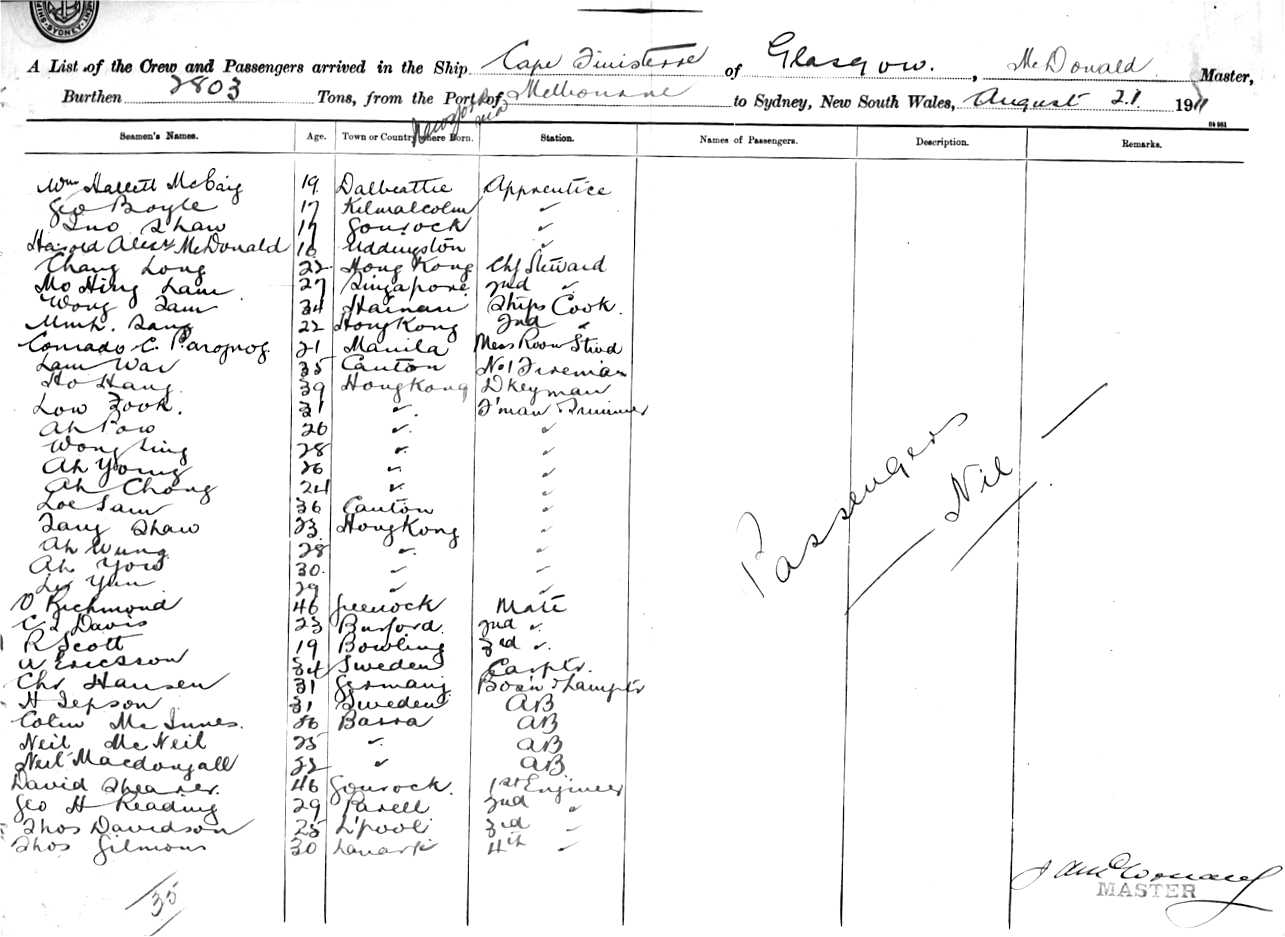 SYDNEY
A List of the Crew and Passengers arrived in the Ship Cape Finisterre of Glasgow. , McDonald Master,
Burthen 2803 Tons, from the Port of Melbourne to Sydney, New South Wales, August 21 1911
Seamen's Names. Age. Town or Country where Born. Station. Names of Passengers. Description. Remarks.
Wm Hallett McCaig 19 Dalbeattie Apprentice
Geo Boyle 17 Kilmalcolm "
Jno Shaw 17 Gourock "
Harold Alexr McDonald 16 Uddingston "
Chang Long 22 Hong Kong Chf Steward
Mo Hing Lam 27 Singapore 2nd "
Wong Sam 34 Hainan Ships Cook.
22 HongKong 2nd "
Conrado C. 21 Manila Mess Room Stwd
Lam Wai 35 Canton No 1 Fireman
Ho Hang 39 HongKong Dkeyman
Low Fook. 31 " F'man Trimmer
Ah Pow 26 " "
Wong Sing 28 " "
Ah Young 26 " "
Ah Chong 24 " "
Loe Sam 36 Canton "
Shaw 23 HongKong "
Ah Wung 28 " "
Ah Yow 30 " "
Yun 29 " "
Richmond 46 Greenock Mate
Davis 23 Burford 2nd "
R Scott 19 Bowling 3rd "
Ericsson 34 Sweden Carptr.
Chr Hansen 31 Germany Bos'n & Lamptr
H Jepson 31 Sweden AB
Colin McInnes. 26 Barra AB
Neil McNeil 25 " AB
Neil Macdougall 22 " AB
David Shearer. 46 Gourock. 1st Engineer
Geo H Reading 29 2nd "
Thos Davidson 25 L'pool 3rd "
Thos Gilmour 30 Lanark 4th "
Passengers
— Nil —
35
MASTER